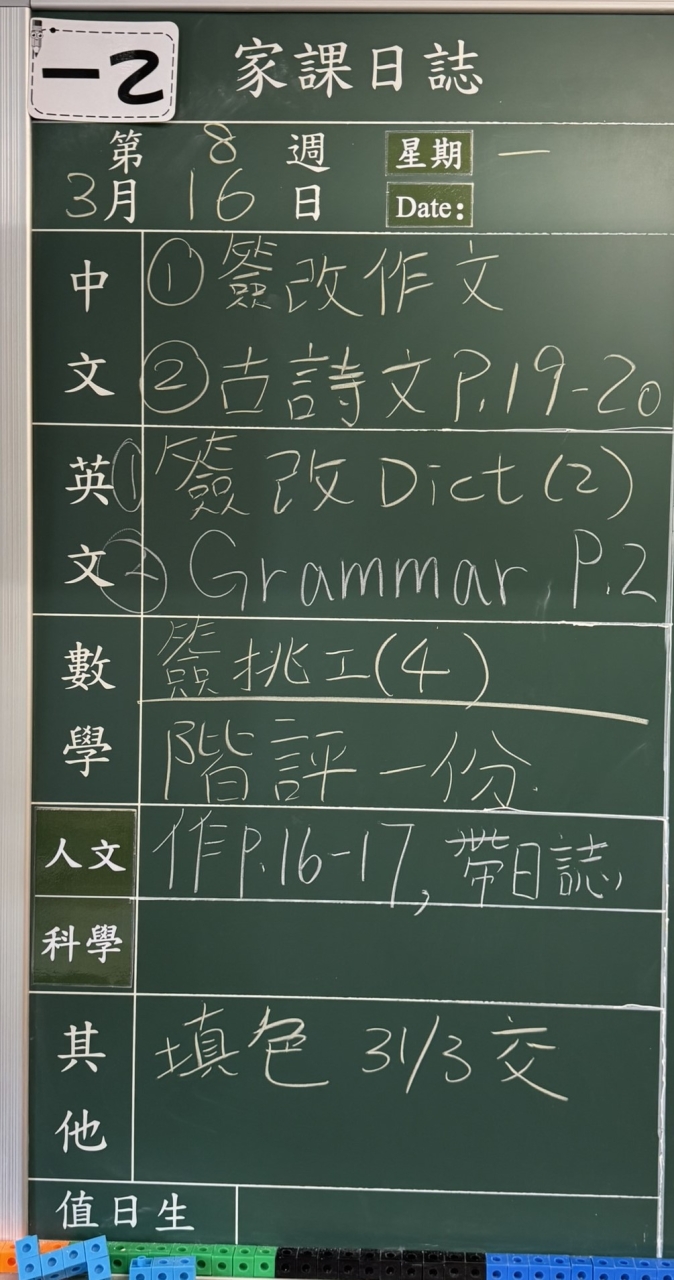 一2
家課日誌
第 8 週 星期 一
3月 16 日 Date:
中文
①簽改作文
②古詩文 P.19-20
英文
①簽改Dict(2)
②Grammar P.2
數學
簽挑工(4)
階評一份
人文
作P.16-17, 帶日誌
科學
其他
填色 31/3 交
值日生